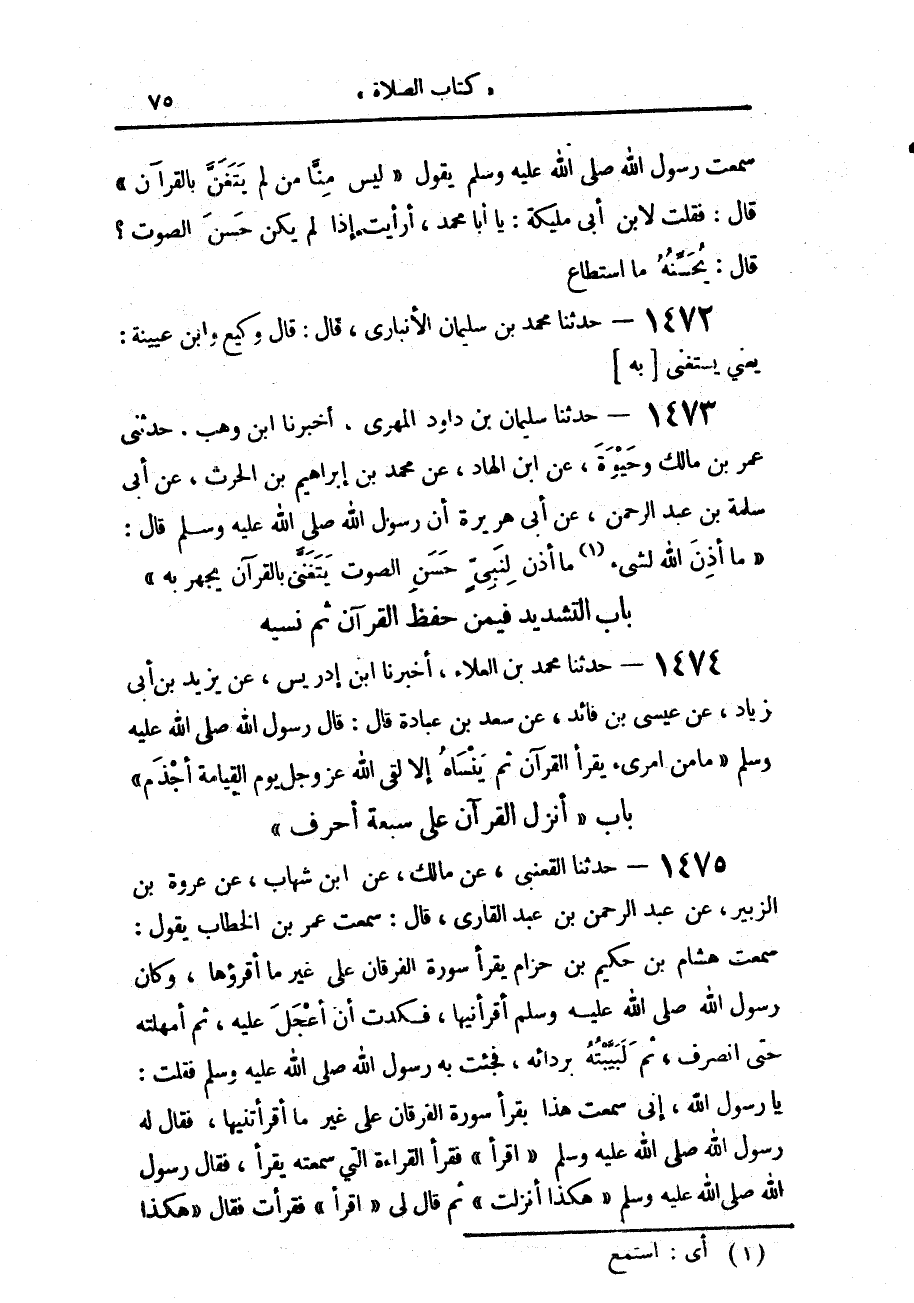 « كتاب الصلاة »
٧٥
سمعت رسول الله صلى الله عليه وسلم يقول « ليس مِنَّا من لم يَتَغَنَّ بالقرآن »
قال : فقلت لابن أبى مليكة : يا أبا محمد ، أرأيت إذا لم يكن حَسَنَ الصوت ؟
قال : يُحَسِّنُهُ ما استطاع
١٤٧٢ – حدثنا محمد بن سليمان الأنبارى ، قال : قال وكيع وابن عيينة :
يعني يستغنى [ به ]
١٤٧٣ – حدثنا سليمان بن داود المهرى . أخبرنا ابن وهب . حدثنى
عمر بن مالك وحَيْوَةَ ، عن ابن الهاد ، عن محمد بن إبراهيم بن الحرث ، عن أبى
سلمة بن عبد الرحمن ، عن أبى هريرة أن رسول الله صلى الله عليه وسلم قال :
« ما أذِنَ الله لشىء (١) ما أذن لِنَبِىٍّ حَسَنِ الصوت يَتَغَنَّى بالقرآن يجهر به »
باب التشديد فيمن حفظ القرآن ثم نسيه
١٤٧٤ – حدثنا محمد بن العلاء ، أخبرنا ابن إدريس ، عن يزيد بن أبى
زياد ، عن عيسى بن فائد ، عن سعد بن عبادة قال : قال رسول الله صلى الله عليه
وسلم « مامن امرىء يقرأ القرآن ثم يَنْسَاهُ إلا لقى الله عز وجل يوم القيامة أجْذَم »
باب « أنزل القرآن على سبعة أحرف »
١٤٧٥ – حدثنا القعنبى ، عن مالك ، عن ابن شهاب ، عن عروة بن
الزبير ، عن عبد الرحمن بن عبد القارى ، قال : سمعت عمر بن الخطاب يقول :
سمعت هشام بن حكيم بن حزام يقرأ سورة الفرقان على غير ما أقرؤها ، وكان
رسول الله صلى الله عليه وسلم أقرأنيها ، فكدت أن أعْجَلَ عليه ، ثم أمهلته
حتى انصرف ، ثم لَبَبْتُهُ بردائه ، فجئت به رسول الله صلى الله عليه وسلم فقلت :
يا رسول الله ، إنى سمعت هذا يقرأ سورة الفرقان على غير ما أقرأتنيها ، فقال له
رسول الله صلى الله عليه وسلم « اقرأ » فقرأ القراءة التي سمعته يقرأ ، فقال رسول
الله صلى الله عليه وسلم « هكذا أنزلت » ثم قال لى « اقرأ » فقرأت فقال « هكذا
(١) أى : استمع